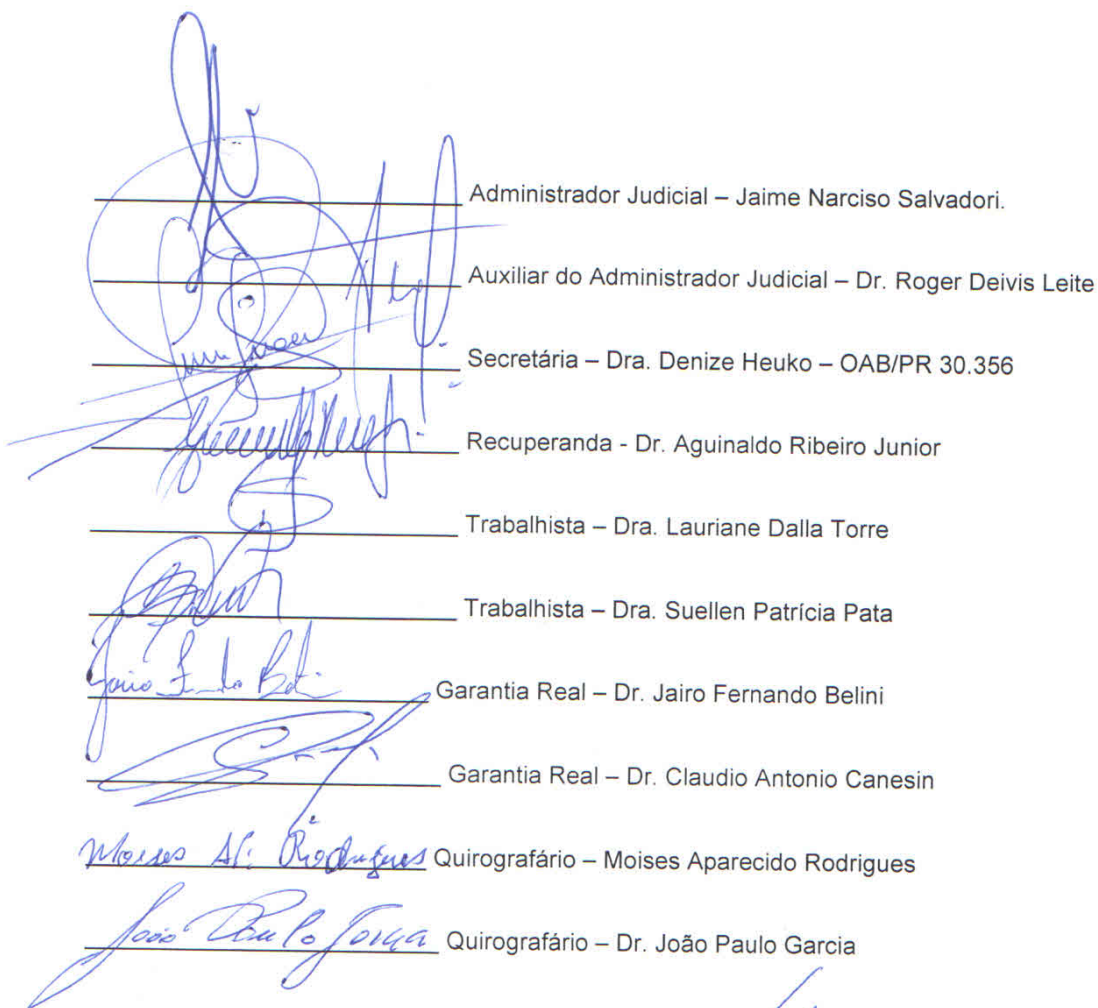 Administrador Judicial – Jaime Narciso Salvadori.
Auxiliar do Administrador Judicial – Dr. Roger Deivis Leite
Secretária – Dra. Denize Heuko – OAB/PR 30.356
Recuperanda - Dr. Aguinaldo Ribeiro Junior
Trabalhista – Dra. Lauriane Dalla Torre
Trabalhista – Dra. Suellen Patrícia Pata
Garantia Real – Dr. Jairo Fernando Belini
Garantia Real – Dr. Claudio Antonio Canesin
Moises Ap. Rodrigues Quirografário – Moises Aparecido Rodrigues
João Paulo Garcia Quirografário – Dr. João Paulo Garcia